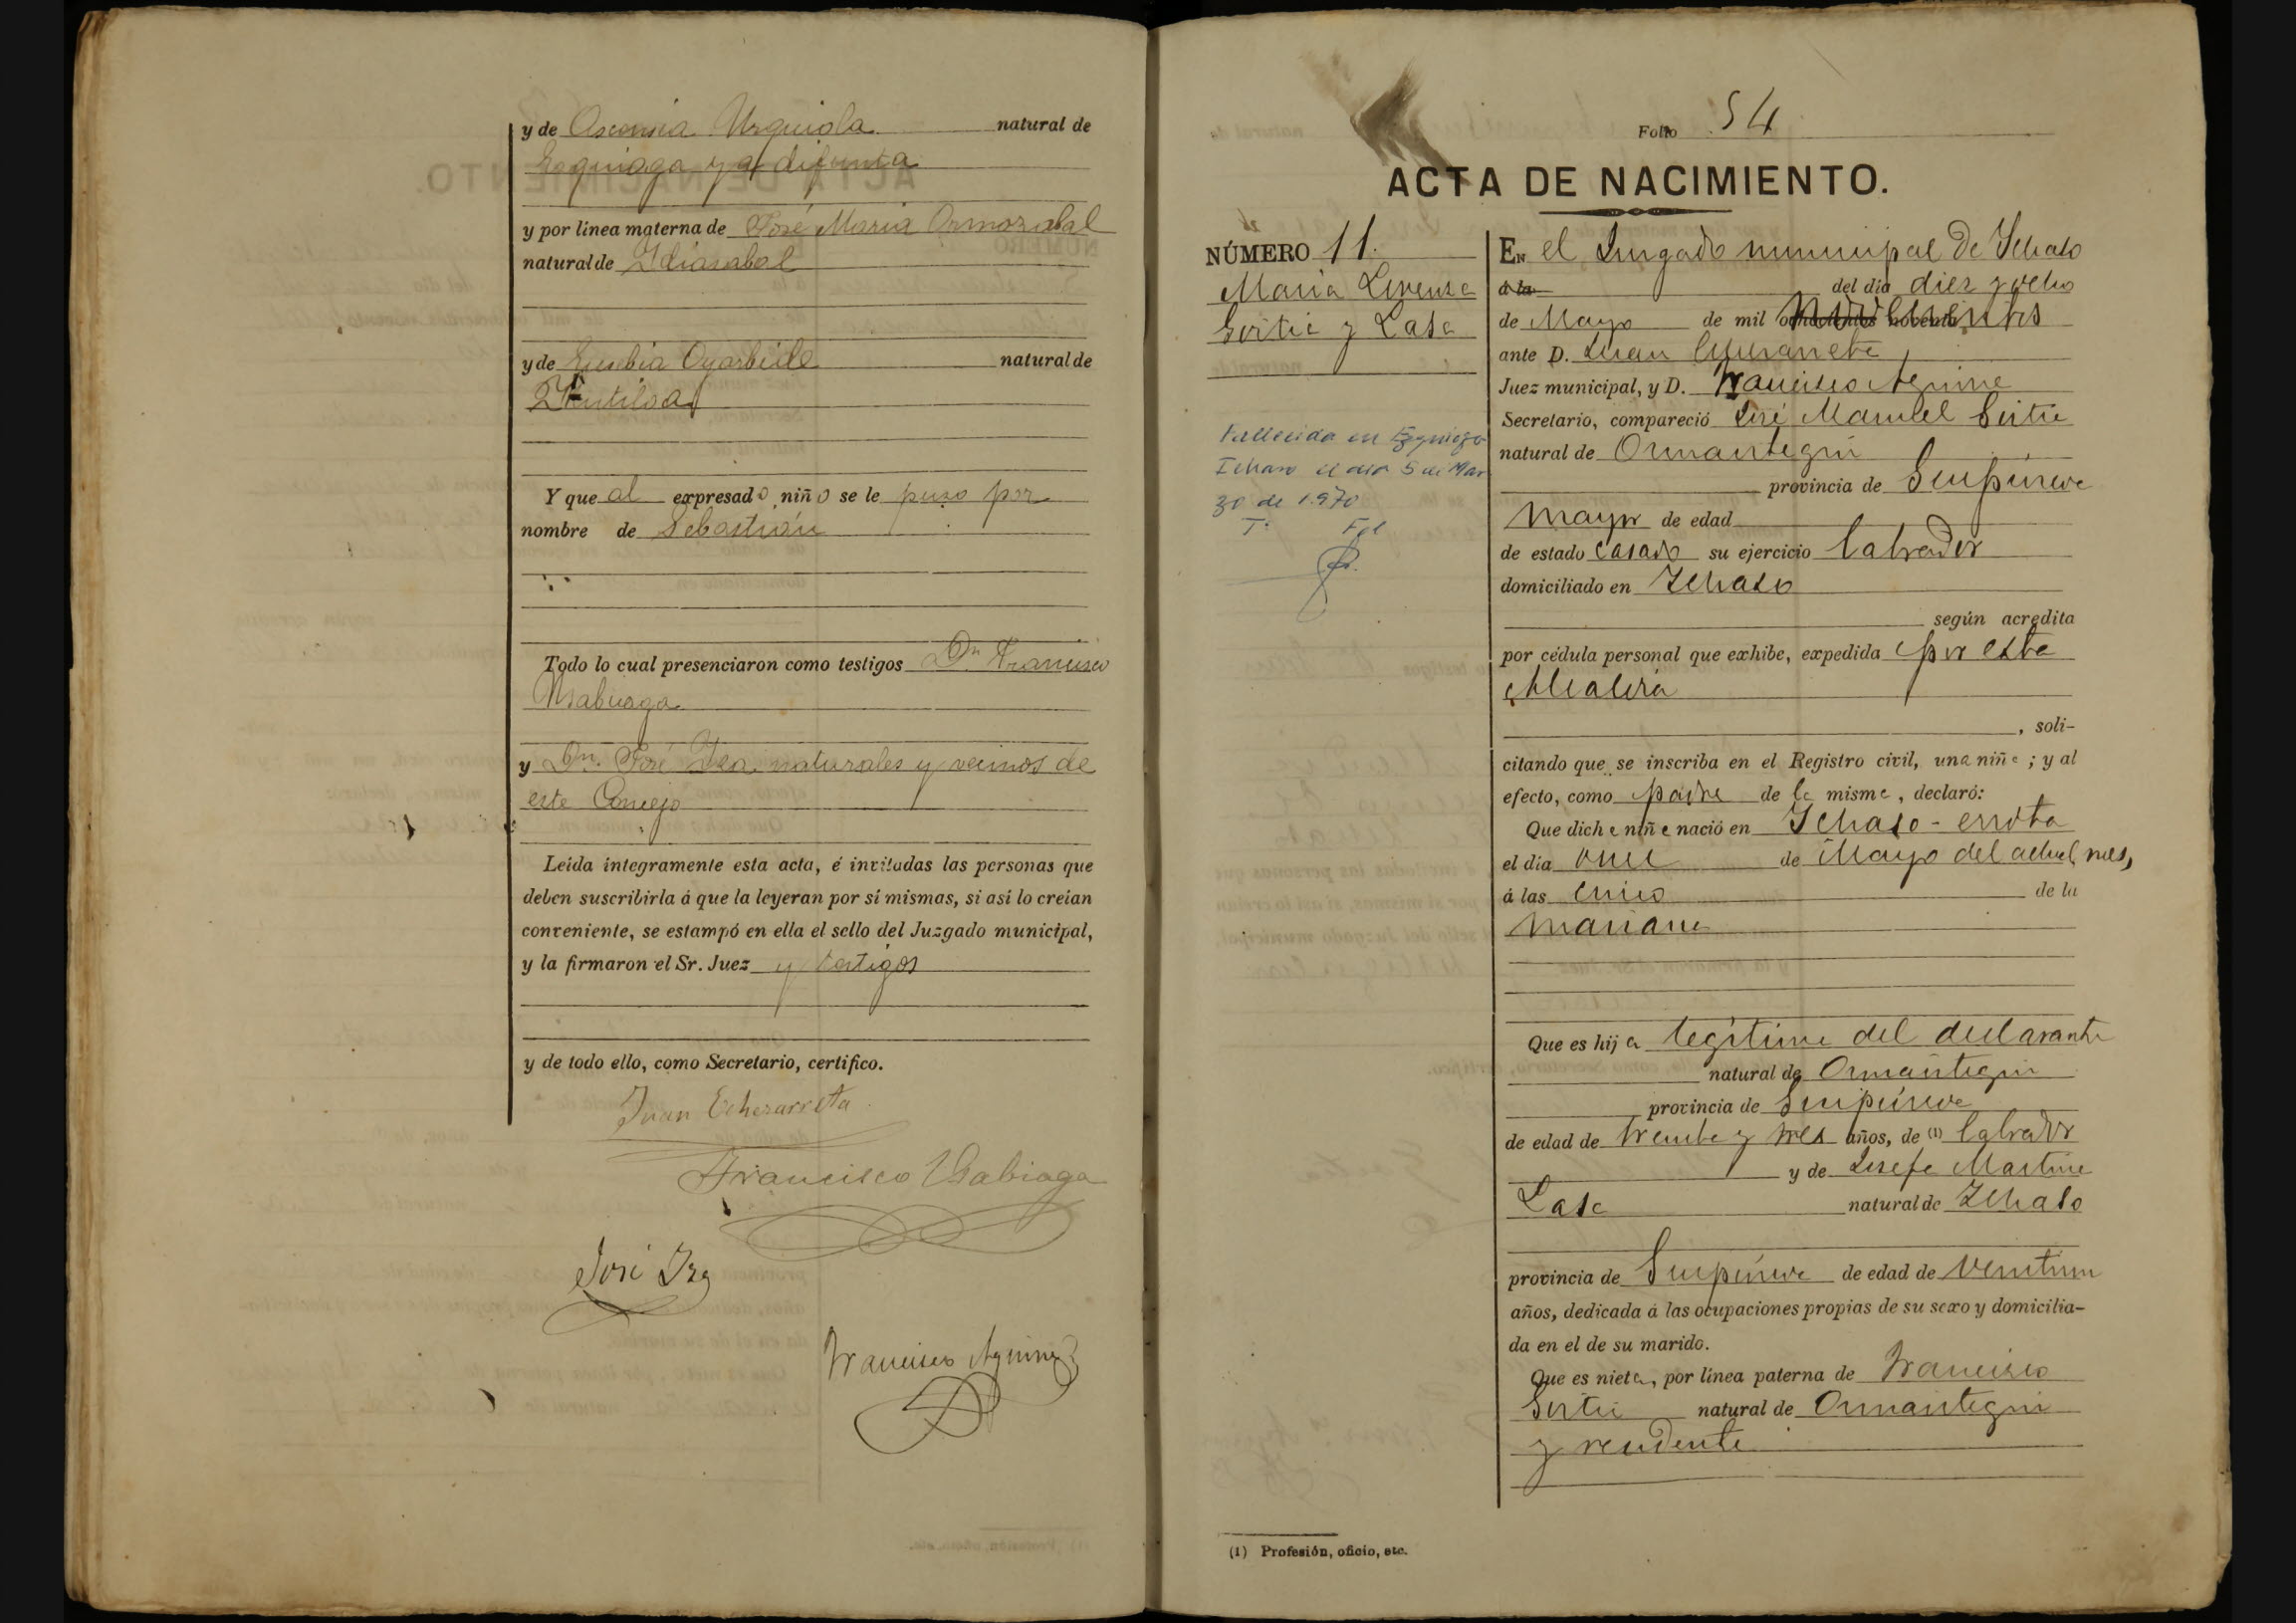 y de Ascensia Urquiola natural de
Ezquiaga ya difunta
y por línea materna de José María Ormazabal
natural de Idiazabal
y de Eusebia Oyarbide natural de
Mutiloa
Y que al expresado niño se le puso por
nombre de Sebastián
Todo lo cual presenciaron como testigos Dn Francisco
Usabiaga
y Dn. José Iza naturales y vecinos de
este Concejo
Leída íntegramente esta acta, é invitadas las personas que
deben suscribirla á que la leyeran por sí mismas, si así lo creían
conveniente, se estampó en ella el sello del Juzgado municipal,
y la firmaron el Sr. Juez y testigos
y de todo ello, como Secretario, certifico.
Juan Echezarreta
Francisco Usabiaga
José Iza
Francisco Aguirre
Folio 54
ACTA DE NACIMIENTO.
NÚMERO 11.
Maria Lorenza
Gortia y Lasa
Fallecida en Ezquioga
Ichaso el dia 5 de Mar
zo de 1.970
T° Fol
En el Juzgado municipal de Ichaso
á la del día diez y ocho
de Mayo de mil ochocientos noventa
ante D. Juan Echezarreta
Juez municipal, y D. Francisco Aguirre
Secretario, compareció José Manuel Gortia
natural de Ormaiztegui
provincia de Guipúzcoa
mayor de edad
de estado casado su ejercicio labrador
domiciliado en Ichaso
según acredita
por cédula personal que exhibe, expedida por esta
Alcaldia
, soli-
citando que se inscriba en el Registro civil, una niña; y al
efecto, como padre de la misma, declaró:
Que dicha niña nació en Ichaso-errota
el día once de Mayo del actual mes,
á las cinco de la
mañana
Que es hija legítima del declarante
natural de Ormaiztegui
provincia de Guipúzcoa
de edad de treinta y tres años, de (1) labrador
y de Josefa Martina
Lasa natural de Ichaso
provincia de Guipúzcoa de edad de veintiun
años, dedicada á las ocupaciones propias de su sexo y domicilia-
da en el de su marido.
Que es nieta, por línea paterna de Francisco
Gortia natural de Ormaiztegui
y residente
(1) Profesión, oficio, etc.